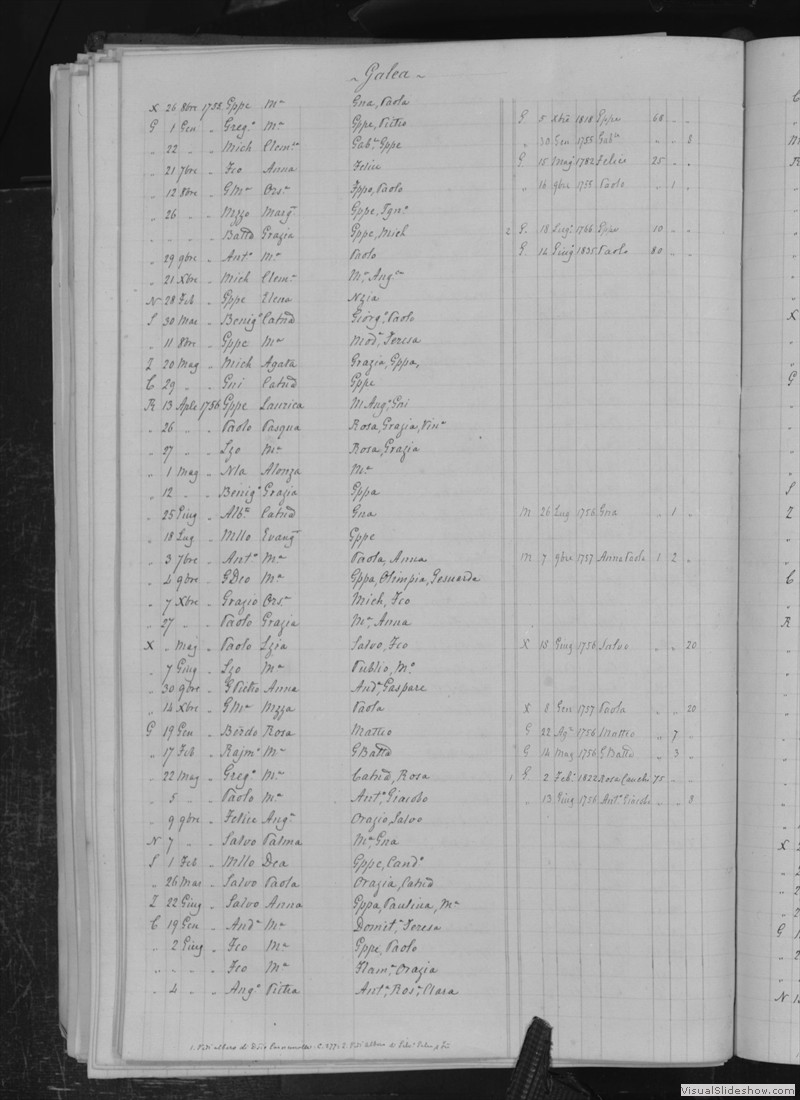 Galea
X 26 8bre 1755 Gppe Ma Gna, Paola
G 1 Gen " Grego Ma Gppe, Pietro G. 5 Xbre 1818 Gppe 60 " "
" 22 " " Mich Clemza Gabe Gppe " 30 Gen 1755 Gabe " " 8
" 21 7bre " Fco Anna Felice G. 15 Mag 1782 Felice 25 " "
" 12 8bre " GMa Orsa Gppe, Paolo " 16 9bre 1755 Paolo " 1 "
" 26 " " Nzzo Marga Gppe, Igno
" " " " Batta Grazia Gppe, Mich 2 G. 18 Lugo 1766 Gppe 10 " "
" 29 9bre " Anto Ma Paolo G. 14 Giugo 1835 Paolo 80 " "
" 21 Xbre " Mich Clemza Ma Anga
N 28 Feb " Gppe Elena Nzia
S 30 Mar " Benigo Catnd Giorgo, Paolo
" 11 8bre " Gppe Ma Moda, Teresa
Z 20 Mag " Mich Agata Grazia, Gppa,
C 29 " " Gni Catnd Gppe
R 13 Aple 1756 Gppe Laurica M Ango, Gni
" 26 " " Paolo Pasqua Rosa, Grazia, Vina
" 27 " " Lzo Ma Rosa, Grazia
" 1 Mag " Nla Alonza Ma
" 12 " " Benigo Grazia Gppa
" 25 Giug " Albo Catnd Gna M 26 Lug 1756 Gna " 1 "
" 18 Lug " Mllo Evanga Gppe
" 3 7bre " Anto Ma Paola, Anna M 7 9bre 1757 Anna Paola 1 2 "
" 4 9bre " GDeo Ma Gppa, Olimpia, Gesuarda
" 7 Xbre " Grazio Orsa Mich, Fco
" 27 " " Paolo Grazia Ma, Anna
X " Mag " Paolo Lzia Salvo, Fco X 15 Giug 1756 Salvo " " 20
" 7 Giug " Lzo Ma Publio, Ma
" 30 9bre " G Pietro Anna Anda, Gaspare
" 14 Xbre " GMa Nzza Paola X 8 Gen 1757 Paola " " 20
G 19 Gen " Bordo Rosa Matteo G 22 Ago 1756 Matteo " 7 "
" 17 Feb " Rajmo Ma GBatta G 14 Mag 1756 GBatta " 3 "
" 22 Mag " Grego Ma Catnd, Rosa 1 G. 2 Febo 1822 Rosa 75 " "
" 5 " " Paolo Ma Anto, Giacobo " 13 Giug 1756 Anto Giacob " " 8
" 9 9bre " Felice Anga Orazio, Salvo
N 7 " " Salvo Palma Ma, Gna
S 1 Feb " Mllo Dea Gppe, Cando
" 26 Mar " Salvo Paola Orazia, Catnd
Z 22 Giug " Salvo Anna Gppa, Paulina, Ma
C 19 Gen " Anda Ma Domita, Teresa
" 2 Giug " Fco Ma Gppe, Paolo
" " " " Fco Ma Flama, Orazia
" 4 " " Ango Pietra Anta, Rosa, Clara
VisualSlideshow.com